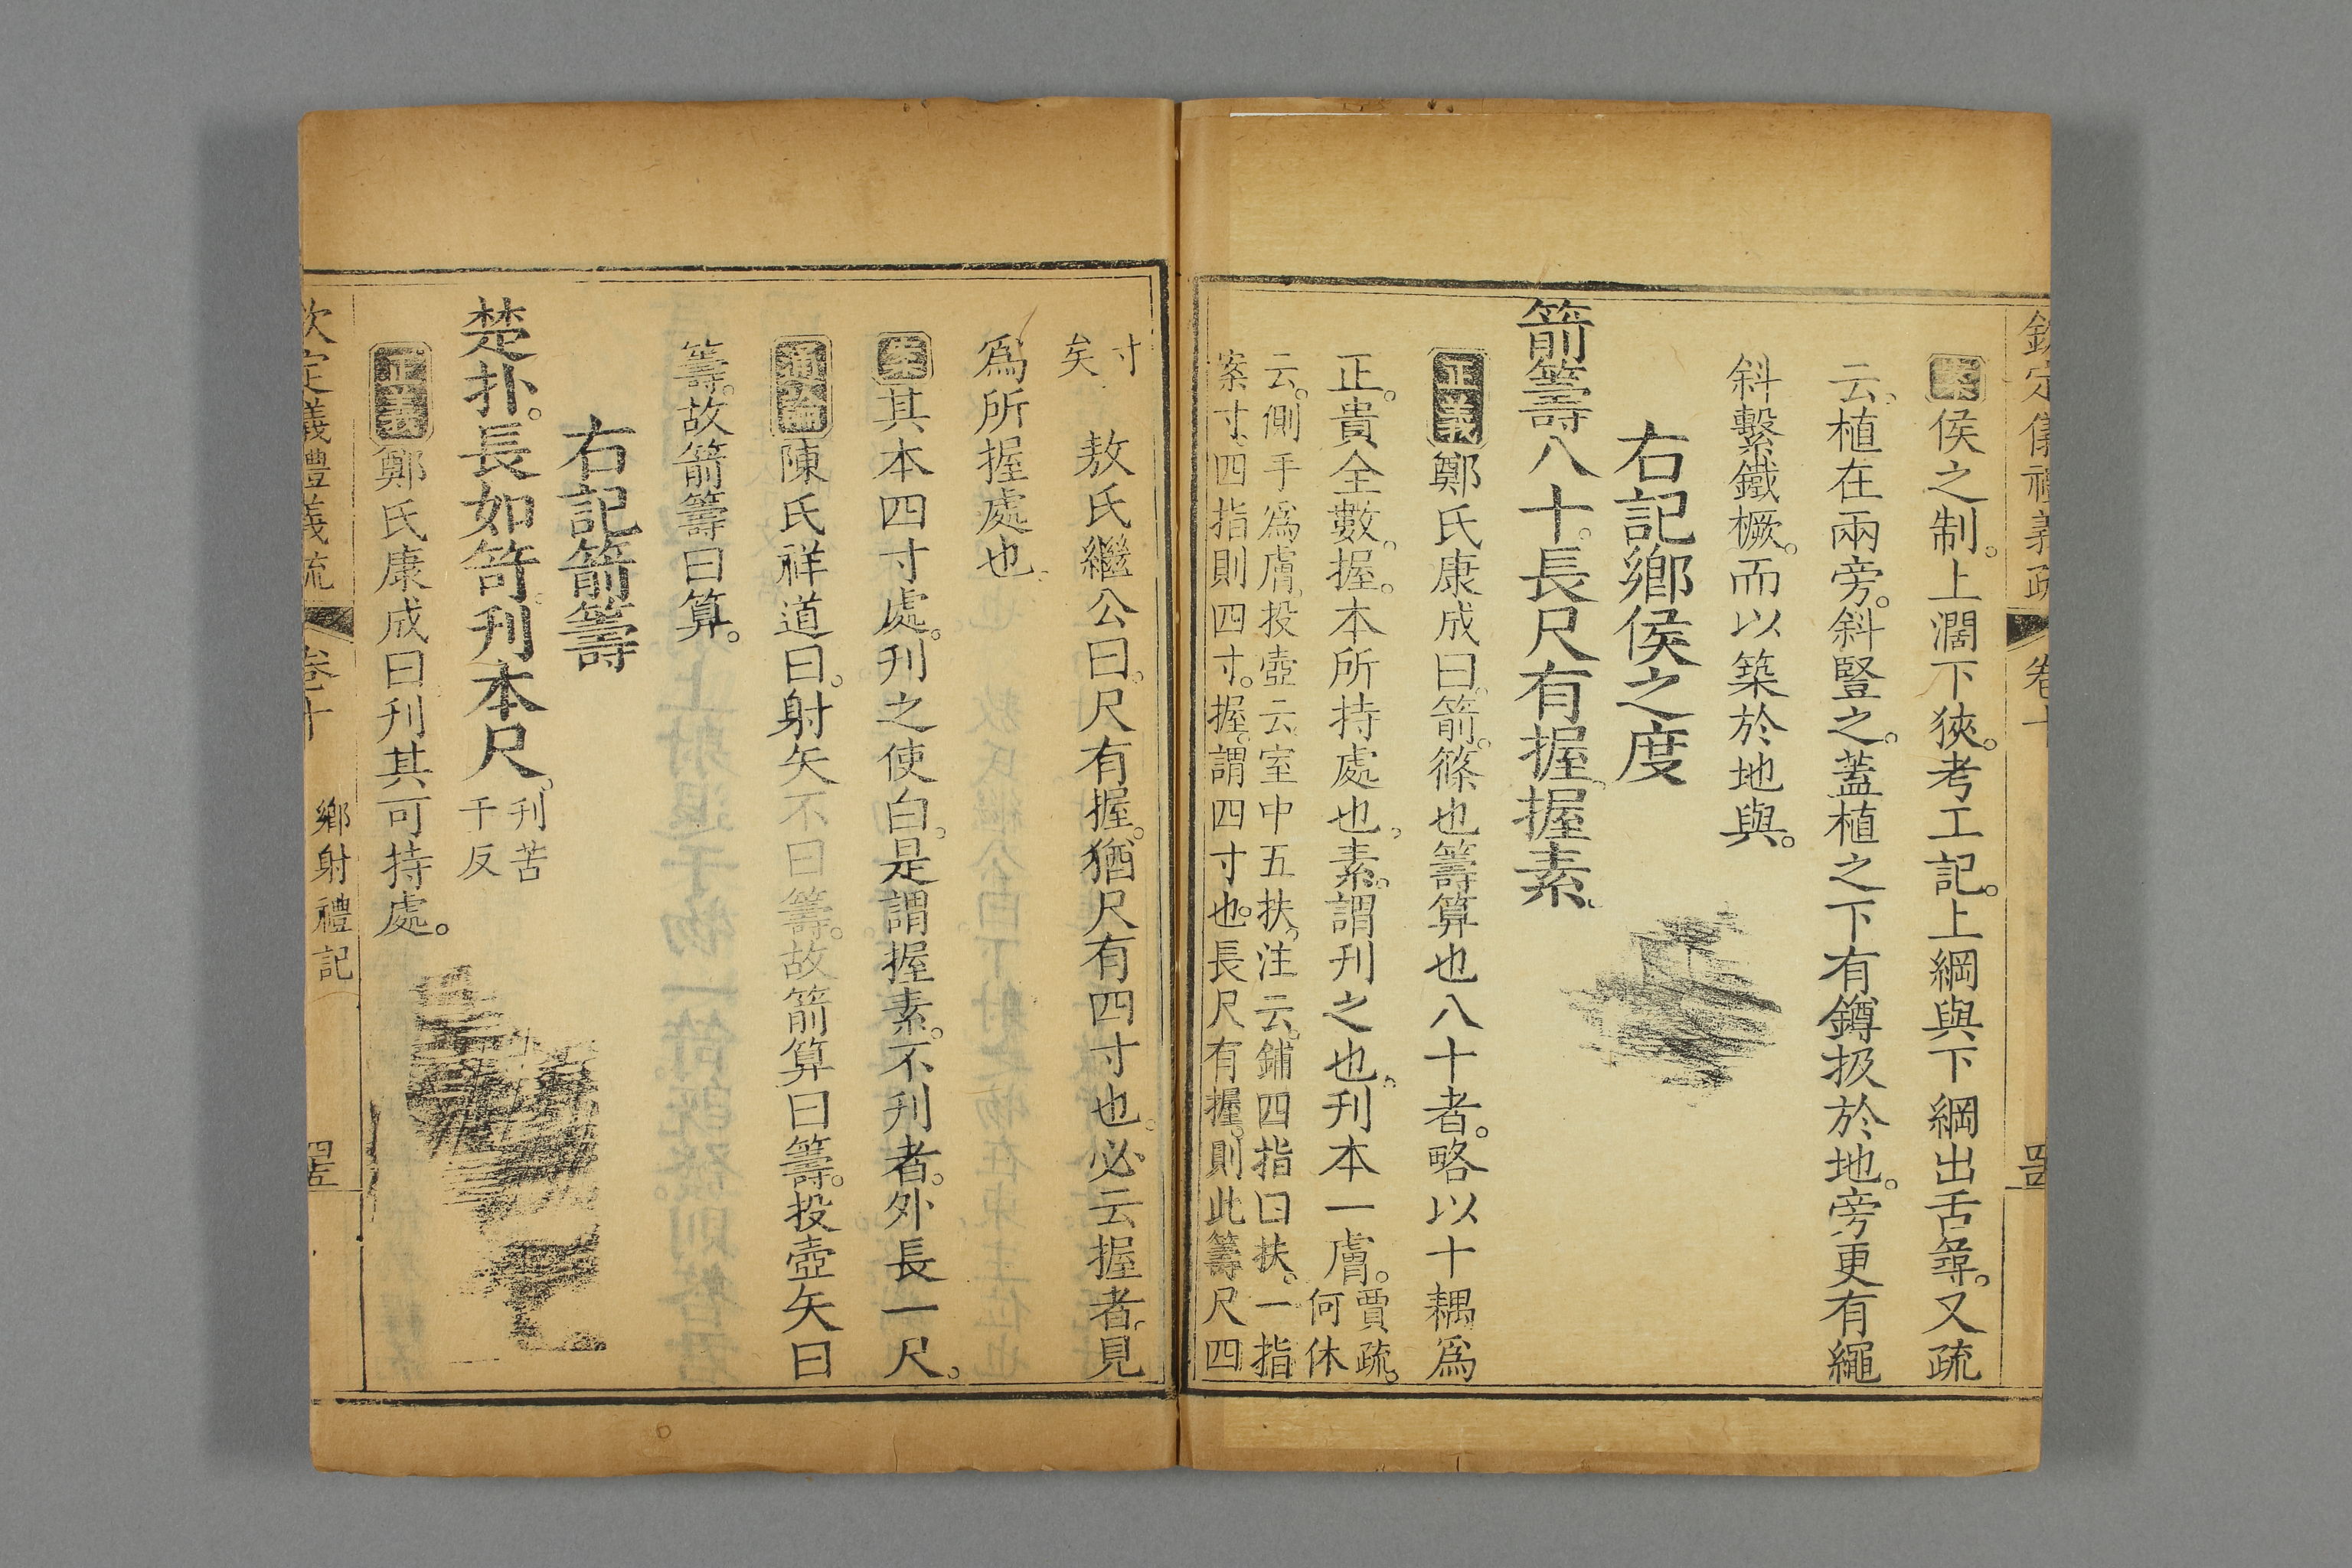 欽定儀禮義疏 卷十
案侯之制。上濶下狹。考工記。上綱與下綱出舌尋。又疏
云。植在兩旁。斜豎之。蓋植之下有鐏扱於地。旁更有繩
斜繫鐵橛。而以築於地與。
右記鄉侯之度
箭籌八十。長尺有握。握素。
正義鄭氏康成曰。箭。篠也籌算也八十者。略以十耦爲
正。貴全數。握。本所持處也。素。謂刋之也。刋本一膚。賈疏。
何休
云。側手爲膚。投壺云室中五扶。注云。鋪四指曰扶。一指
案寸。四指則四寸。握。謂四寸也。長尺有握。則此籌尺四
寸
矣
敖氏繼公曰。尺有握。猶尺有四寸也。必云握者。見
爲所握處也。
案其本四寸處。刋之使白。是謂握素。不刋者。外長一尺。
通論陳氏祥道曰。射矢不曰籌。故箭算曰籌。投壺矢曰
籌。故箭籌曰算。
右記箭籌
楚扑。長如笴。刋本尺。
刋苦
干反
正義鄭氏康成曰。刋其可持處。
欽定儀禮義疏 卷十 鄉射禮記